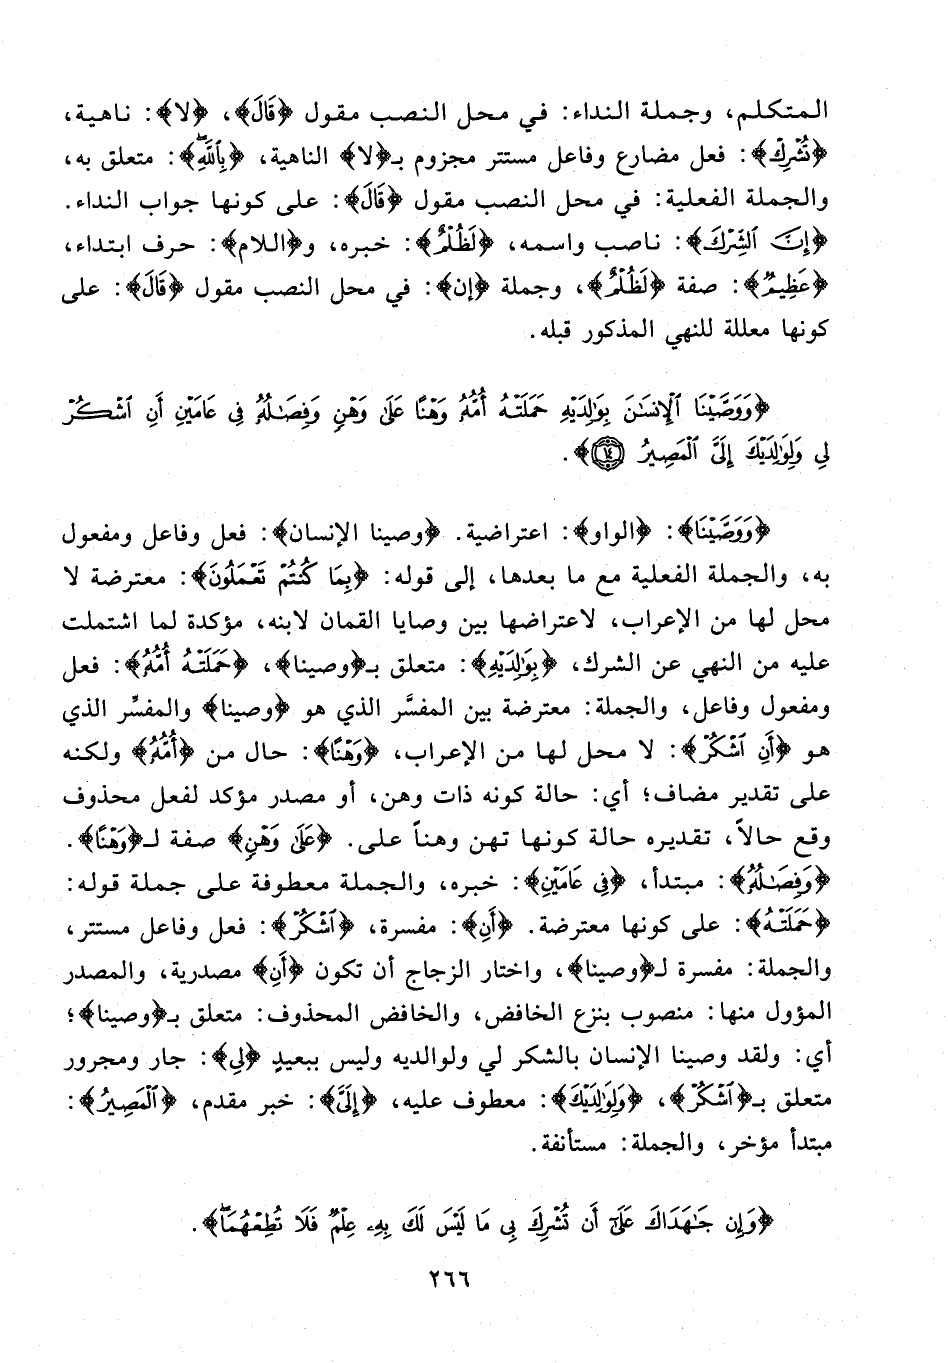 المتكلم، وجملة النداء: في محل النصب مقول ﴿قَالَ﴾، ﴿لا﴾: ناهية،
﴿تُشْرِكْ﴾: فعل مضارع وفاعل مستتر مجزوم بـ﴿لا﴾ الناهية، ﴿بِٱللَّهِۖ﴾: متعلق به،
والجملة الفعلية: في محل النصب مقول ﴿قَالَ﴾: على كونها جواب النداء.
﴿إِنَّ ٱلشِّرْكَ﴾: ناصب واسمه، ﴿لَظُلْمٌ﴾: خبره، و﴿اللام﴾: حرف ابتداء،
﴿عَظِيمٌ﴾: صفة ﴿لَظُلْمٌ﴾، وجملة ﴿إن﴾: في محل النصب مقول ﴿قَالَ﴾: على
كونها معللة للنهي المذكور قبله.
﴿وَوَصَّيْنَا ٱلْإِنسَٰنَ بِوَٰلِدَيْهِ حَمَلَتْهُ أُمُّهُۥ وَهْنًا عَلَىٰ وَهْنٍ وَفِصَٰلُهُۥ فِى عَامَيْنِ أَنِ ٱشْكُرْ
لِى وَلِوَٰلِدَيْكَ إِلَىَّ ٱلْمَصِيرُ ١٤﴾.
﴿وَوَصَّيْنَا﴾: ﴿الواو﴾: اعتراضية. ﴿وصينا الإنسان﴾: فعل وفاعل ومفعول
به، والجملة الفعلية مع ما بعدها، إلى قوله: ﴿بِمَا كُنتُمْ تَعْمَلُونَ﴾: معترضة لا
محل لها من الإعراب، لاعتراضها بين وصايا القمان لابنه، مؤكدة لما اشتملت
عليه من النهي عن الشرك، ﴿بِوَٰلِدَيْهِ﴾: متعلق بـ﴿وصينا﴾، ﴿حَمَلَتْهُ أُمُّهُۥ﴾: فعل
ومفعول وفاعل، والجملة: معترضة بين المفسَّر الذي هو ﴿وصينا﴾ والمفسِّر الذي
هو ﴿أَنِ ٱشْكُرْ﴾: لا محل لها من الإعراب، ﴿وَهْنًا﴾: حال من ﴿أُمُّهُۥ﴾ ولكنه
على تقدير مضاف؛ أي: حالة كونه ذات وهن، أو مصدر مؤكد لفعل محذوف
وقع حالاً، تقديره حالة كونها تهن وهناً على. ﴿عَلَىٰ وَهْنٍ﴾ صفة لـ﴿وَهْنًا﴾.
﴿وَفِصَٰلُهُۥ﴾: مبتدأ، ﴿فِى عَامَيْنِ﴾: خبره، والجملة معطوفة على جملة قوله:
﴿حَمَلَتْهُ﴾: على كونها معترضة. ﴿أَنِ﴾: مفسرة، ﴿ٱشْكُرْ﴾: فعل وفاعل مستتر،
والجملة: مفسرة لـ﴿وصينا﴾، واختار الزجاج أن تكون ﴿أَنِ﴾ مصدرية، والمصدر
المؤول منها: منصوب بنزع الخافض، والخافض المحذوف: متعلق بـ﴿وصينا﴾؛
أي: ولقد وصينا الإنسان بالشكر لي ولوالديه وليس ببعيدٍ ﴿لِى﴾: جار ومجرور
متعلق بـ﴿ٱشْكُرْ﴾، ﴿وَلِوَٰلِدَيْكَ﴾: معطوف عليه، ﴿إِلَىَّ﴾: خبر مقدم، ﴿ٱلْمَصِيرُ﴾:
مبتدأ مؤخر، والجملة: مستأنفة.
﴿وَإِن جَٰهَدَاكَ عَلَىٰٓ أَن تُشْرِكَ بِى مَا لَيْسَ لَكَ بِهِۦ عِلْمٌ فَلَا تُطِعْهُمَاۖ﴾.
٢٦٦